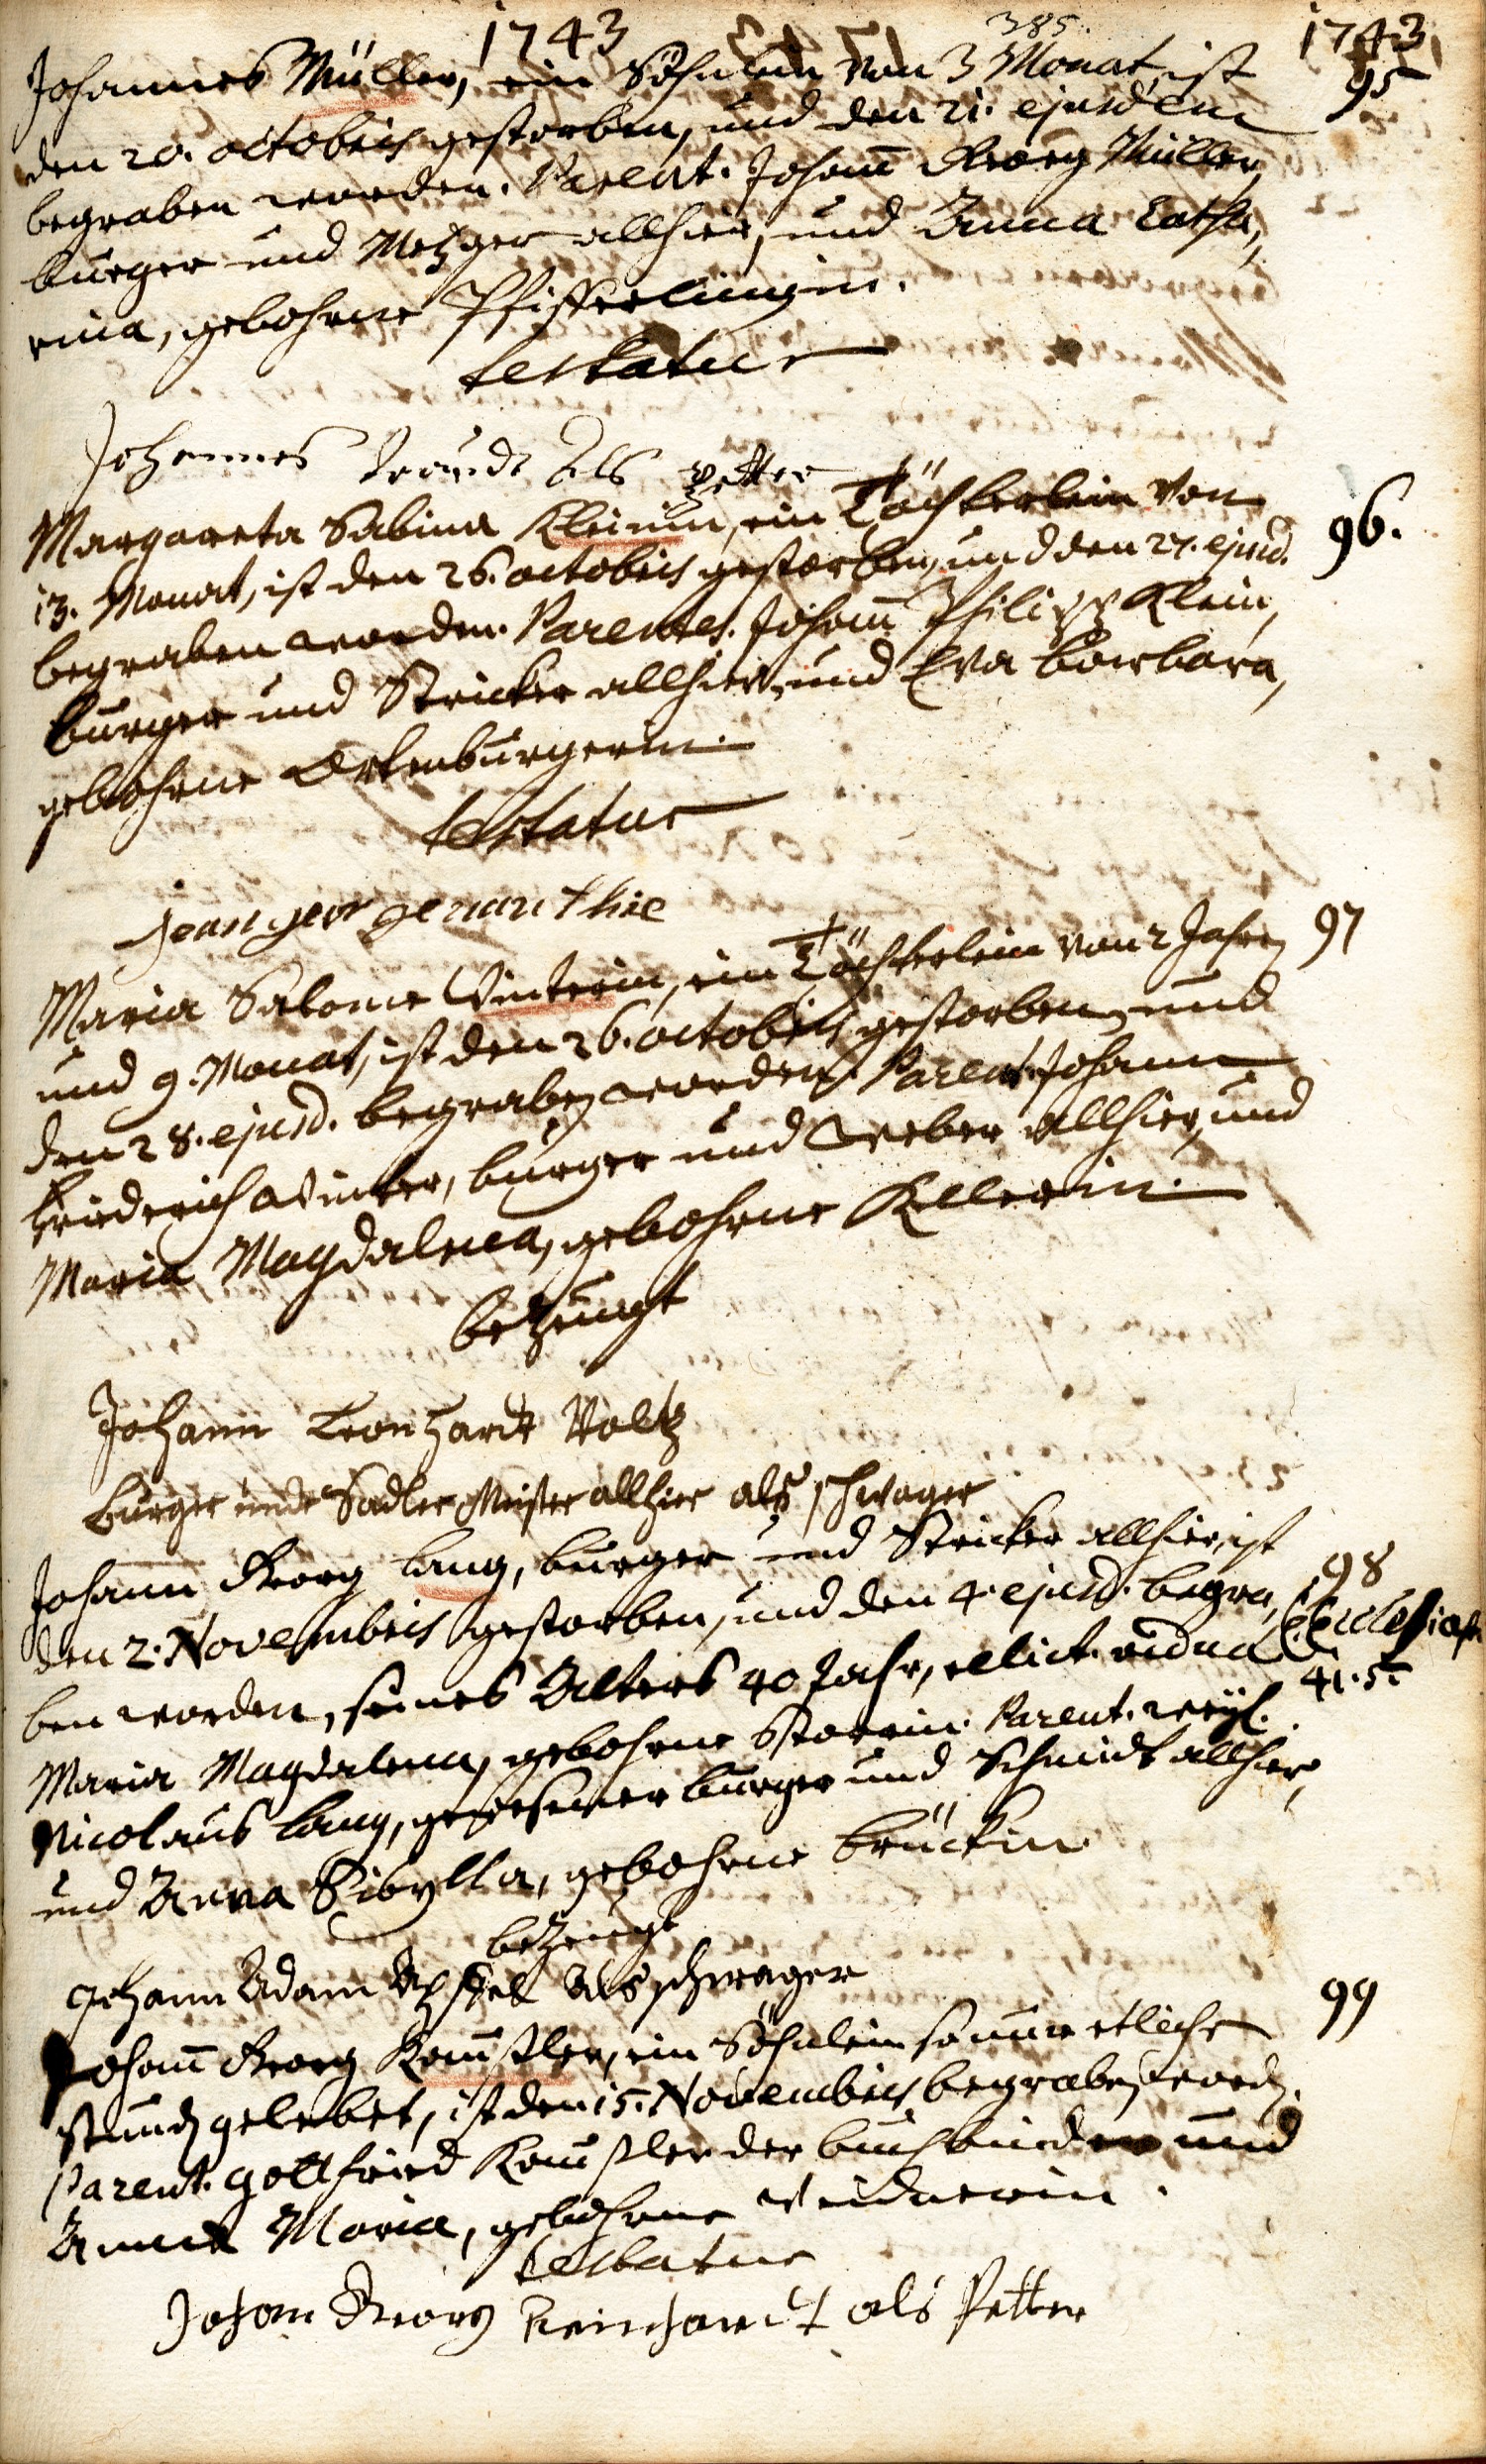 1743 385. 1743
Johannes Müller, ein Söhnlein von 3 Monat, ist 95
den 20. octobris gestorben, und den 21. ejusdem
begraben worden. Parent. Johann Georg Müller,
burger und Metzger allhier, und Anna Catha,
rina, gebohrne Pfifferlingin.
testatur
Johannes als petter
Margareta Sabina Kleinin, ein Töchterlein von 96.
13. Monat, ist den 26. octobris gestorben, und den 27. ejusd.
begraben worden. Parentes. Johann Philipp Klein,
burger und Stricker allhier, und Eva barbara,
gebohrne Ortenburgerin.
testatur
jean geor
Maria Salome Winterin, ein Töchterlein von 2 Jahren 97
und 9. Monat, ist den 26. octobris gestorben, und
den 28. ejusd. begraben worden. Parent. Johann
Friederich Winter, burger und Weber allhier, und
Maria Magdalena, gebohrne Kellerin.
bezeugt
Johann Leonhardt Voltz
burger und Sadler Meister allhier als schwager
Johann Georg Lang, burger und Stricker allhier, ist 98
den 2. Novembris gestorben, und den 4. ejusd. begra,
ben worden, seines Alters 40 Jahr, relict. vidua Ecclesiast. 41. 5.
Maria Magdalena, gebohrne Storrin. Parent. weyl.
Nicolaus Lang, gewesener burger und Schmidt allhier,
und Anna Sibylla, gebohrne brückin
bezeugt
Johann Adam als schwager
Johann Georg Kamstler, ein Söhnlein so nur etliche 99
stund gelebet, ist den 15. Novembris begraben word.
Parent. Gottfried Kamstler der buchbinder und
Anna Maria, gebohrne Weidnerin.
testatur
Johann Georg Reinhardt als Petter